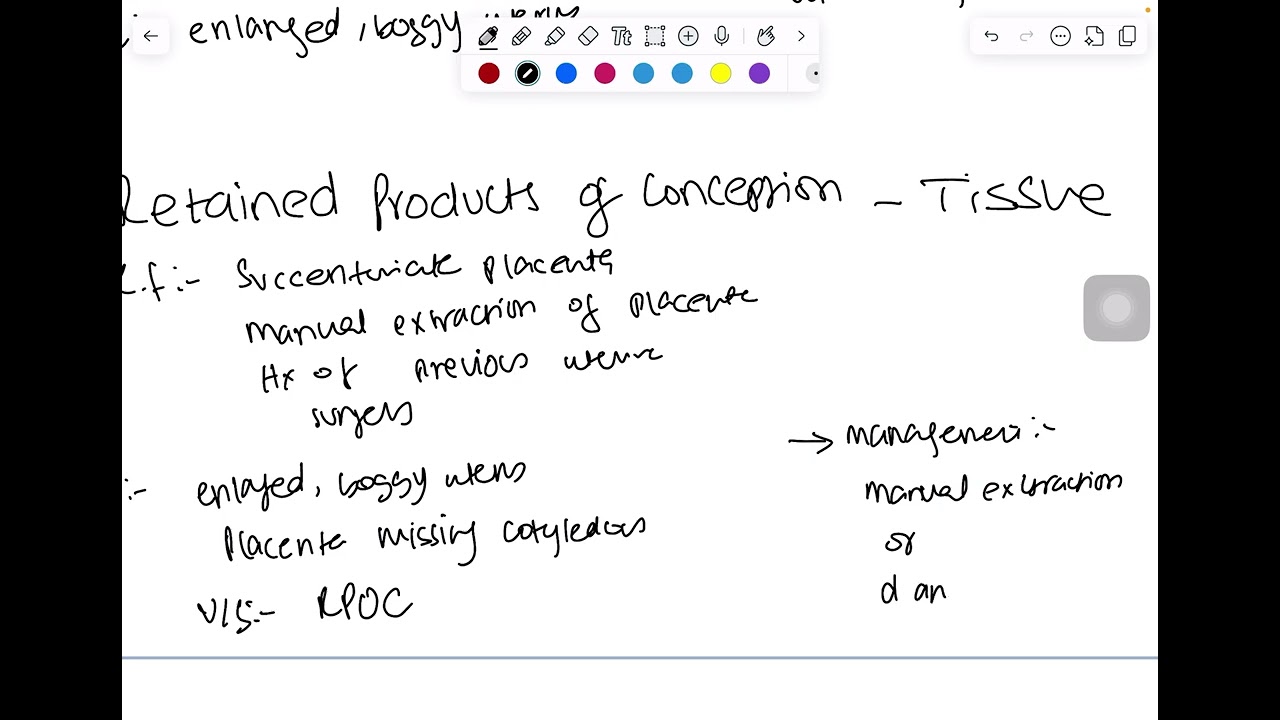 enlarged, boggy uterus
Tt
Retained Products of Conception - Tissue
R.f :- Succenturiate placenta
manual extraction of placenta
Hx of previous uterine
surgery
→ management :-
:- enlarged, boggy uterus
manual extraction
Placenta missing cotyledons
or
d an
U/S :- RPOC